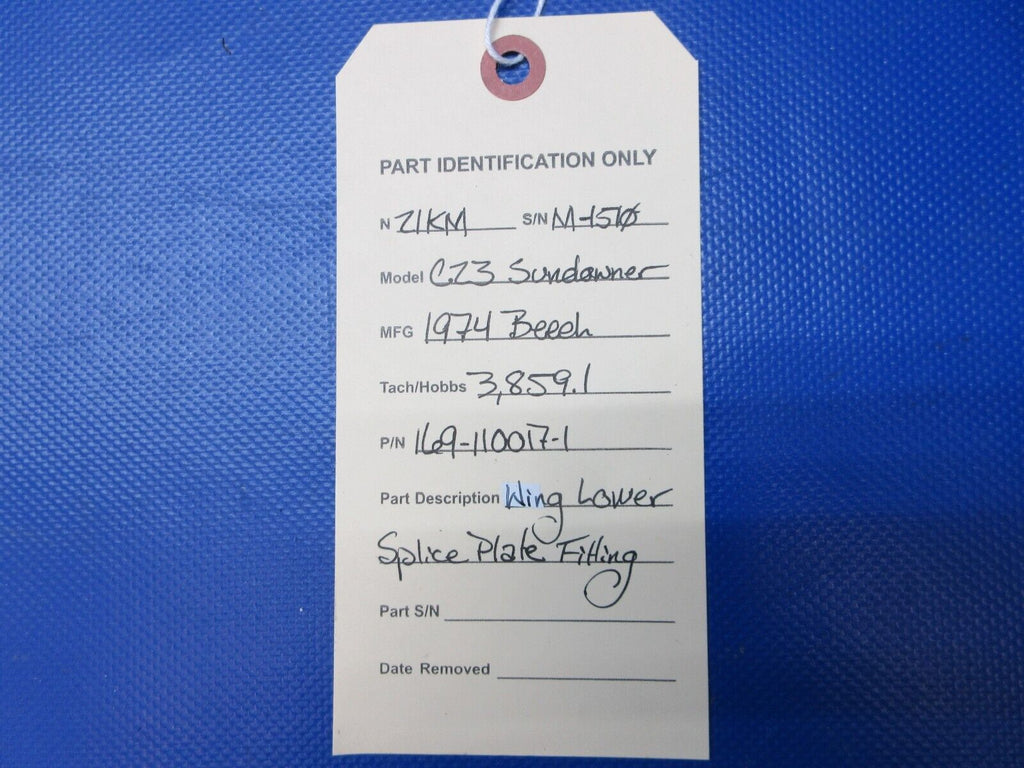 PART IDENTIFICATION ONLY
N 21KM S/N M-1510
Model C23 Sundowner
MFG 1974 Beech
Tach/Hobbs 3,859.1
P/N 169-110017-1
Part Description Wing Lower
Splice Plate Fitting
Part S/N
Date Removed